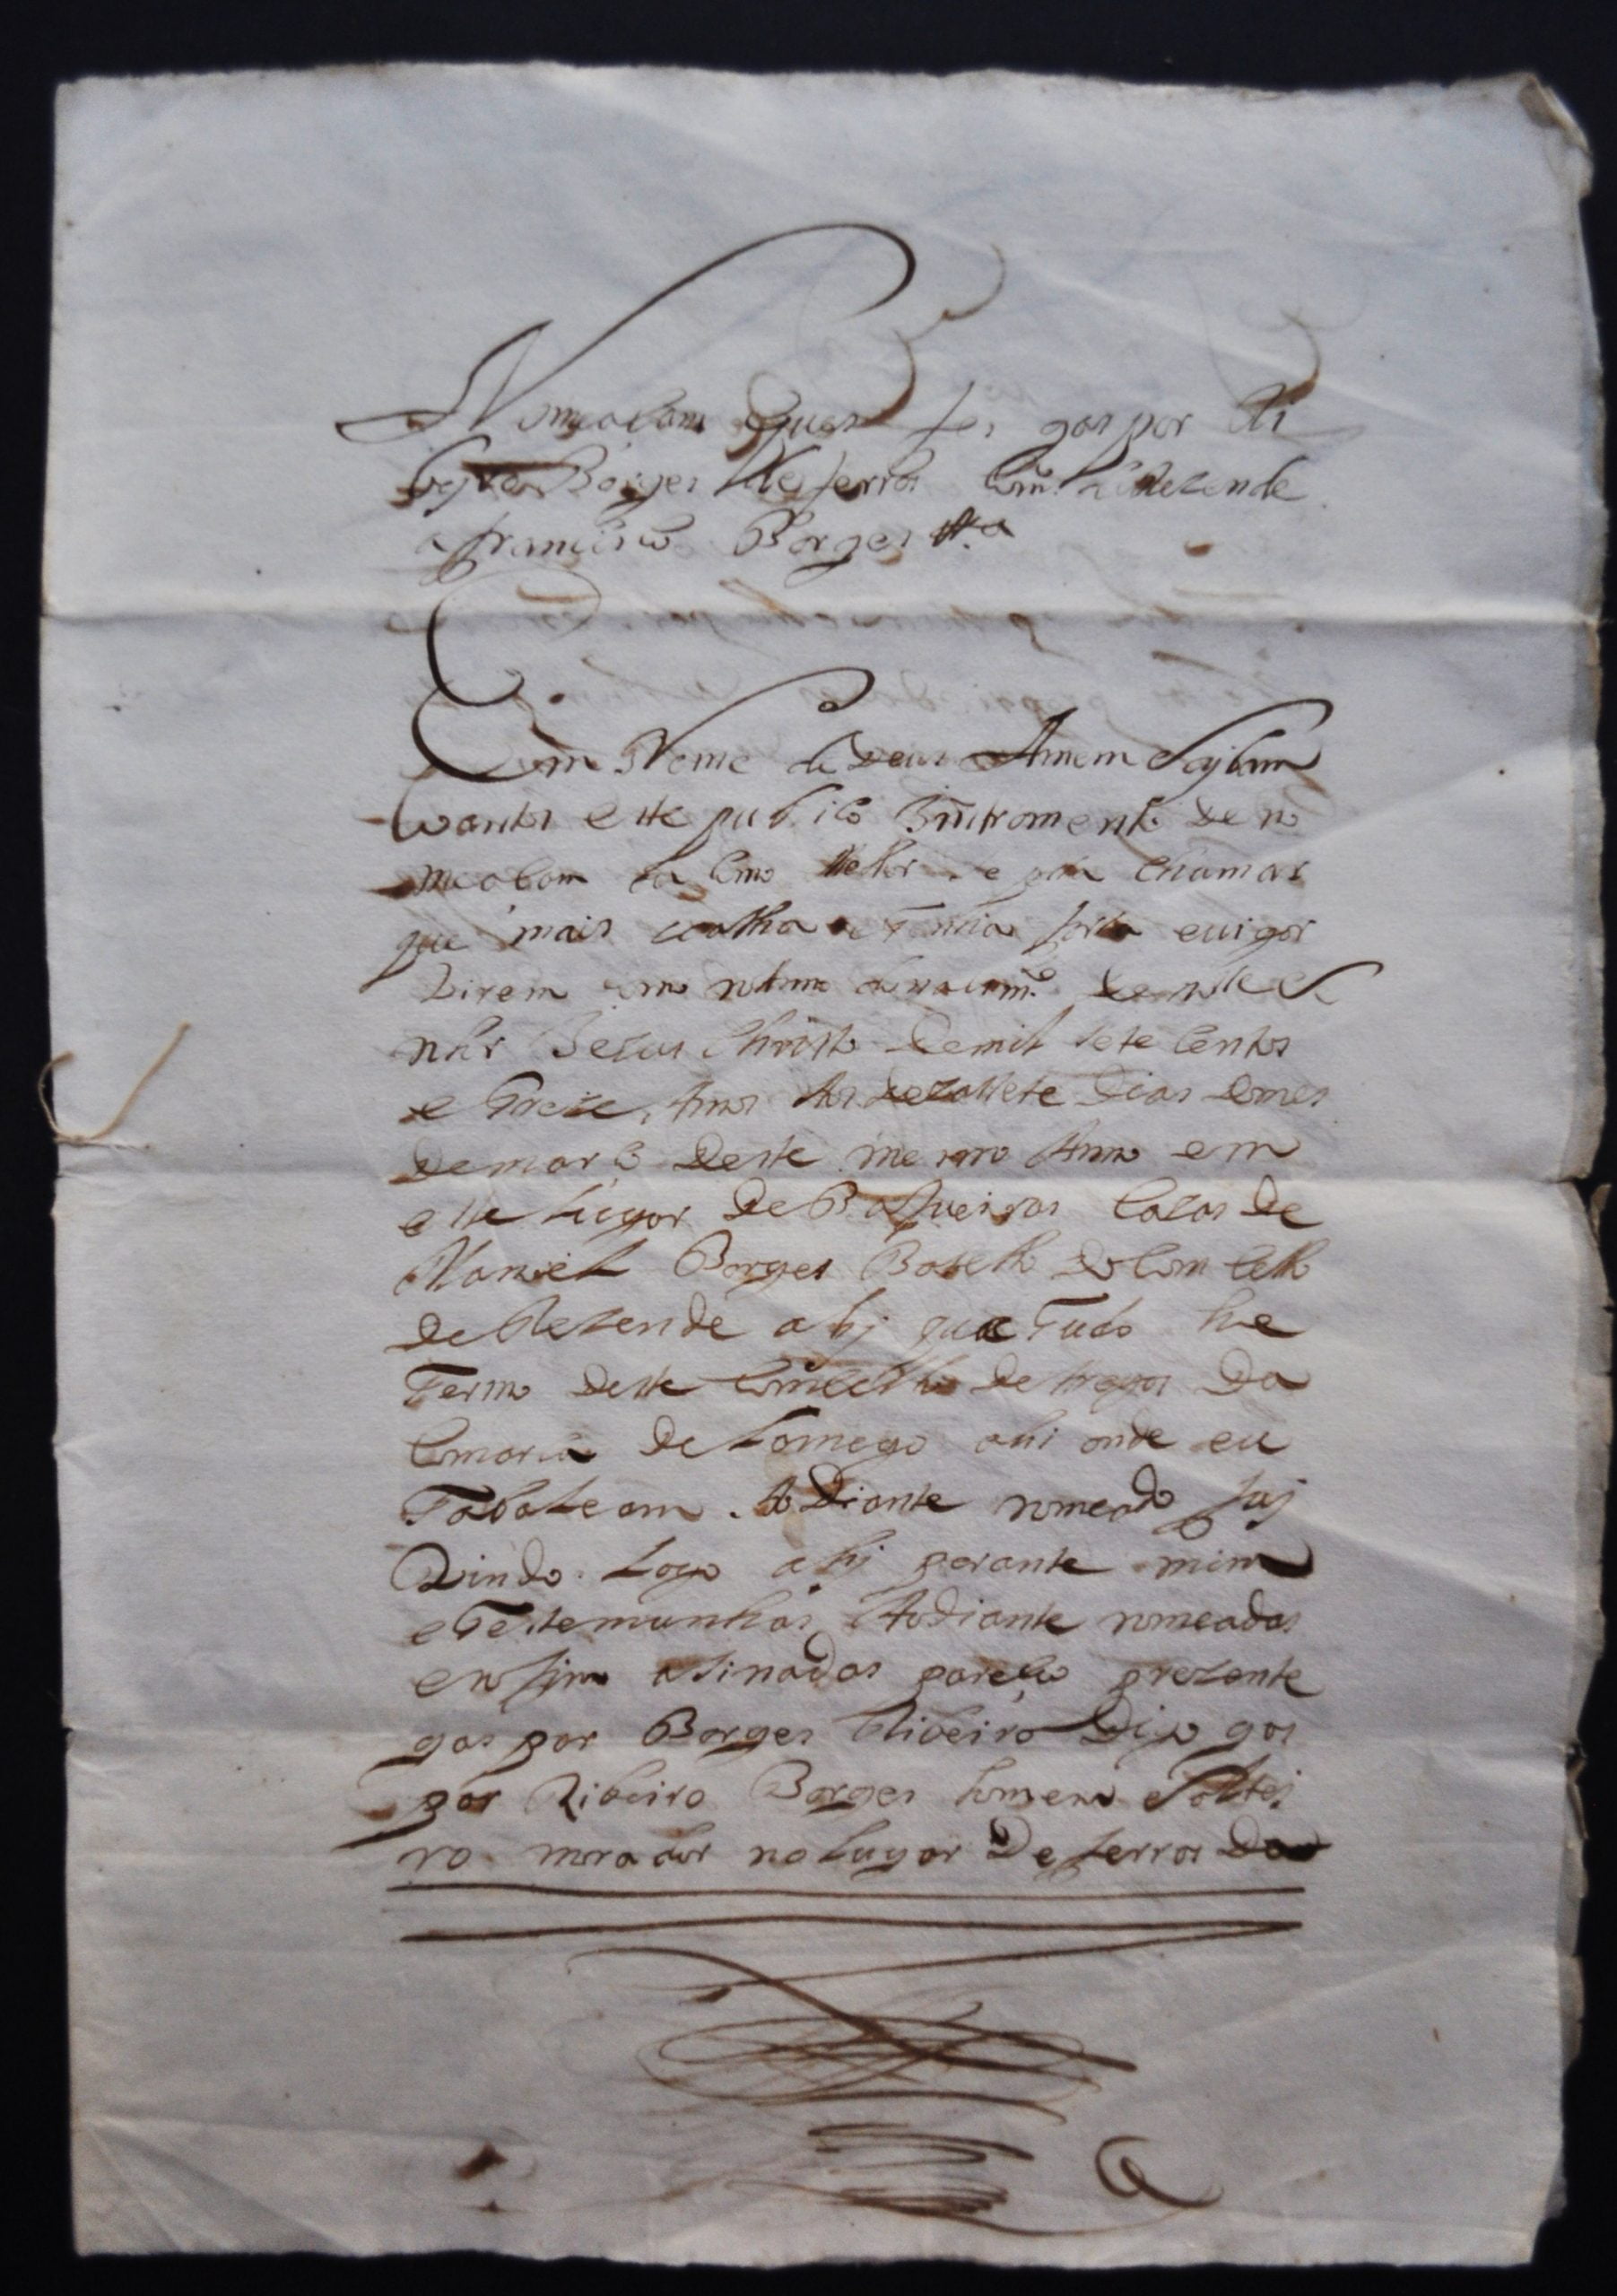 Nomeacam que fes gaspar Ri
beyro Borges de ferros Com.º de Rezende
a francisco Borges
Em Nome de Deus Amem Saybam
coantos este publico Instromento de no
meacam ou Como melhor se posa chamar
que mais valha e tenha forsa e uigor
Virem Como no Anno do nacim.to de noso Se
nhor Jezus Christo de mil sete centos
e treze Annos Aos dezasete Dias do mes
de março deste mesmo Anno em
este Lugar de Casas de
Manoel Borges Botelho do Comcelho
de Rezende ahy que Tudo he
Termo deste Comcelho de Aregos Da
Comarca de Lamego ahi onde eu
Tabaleam Ao Diante nomeado fuj
Vindo Logo ahy perante mim
e Testemunhas Ao diante nomeadas
e no fim asinadas pareceo prezente
gaspar Borges Ribeiro Digo gas
par Ribeiro Borges homem Soltej
ro morador no Lugar De ferros Do